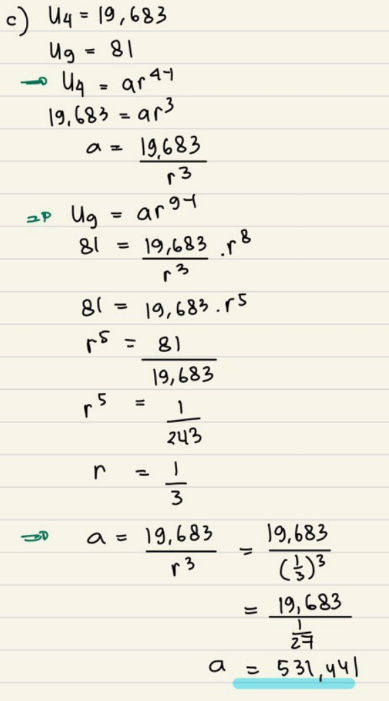 c) U4 = 19,683
U9 = 81
→ U4 = ar^4-1
19,683 = ar^3
a = 19,683 / r^3
⇒ U9 = ar^9-1
81 = 19,683 / r^3 . r^8
81 = 19,683 . r^5
r^5 = 81 / 19,683
r^5 = 1 / 243
r = 1 / 3
⇒ a = 19,683 / r^3 = 19,683 / (1/3)^3
= 19,683 / 1/27
a = 531,441